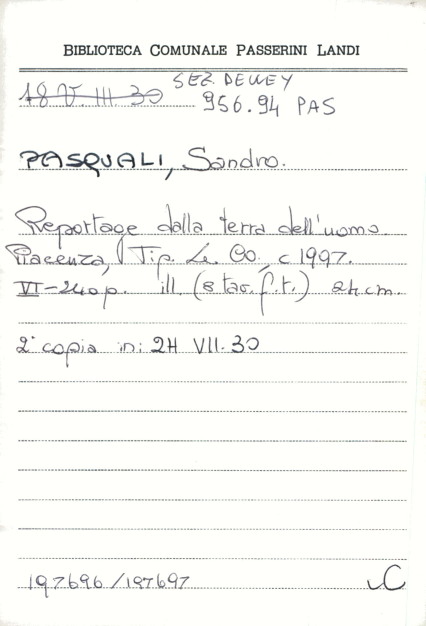 BIBLIOTECA COMUNALE PASSERINI LANDI
SEZ. DEWEY
18 V III. 30 956.94 PAS
PASQUALI, Sandro.
Reportage dalla terra dell'uomo.
Piacenza, Tip. Le. Co. c 1997.
VI-240 p. ill. (8 tav. f.t.) 24 cm.
2ª copia in: 2H VII. 30
197696/197697